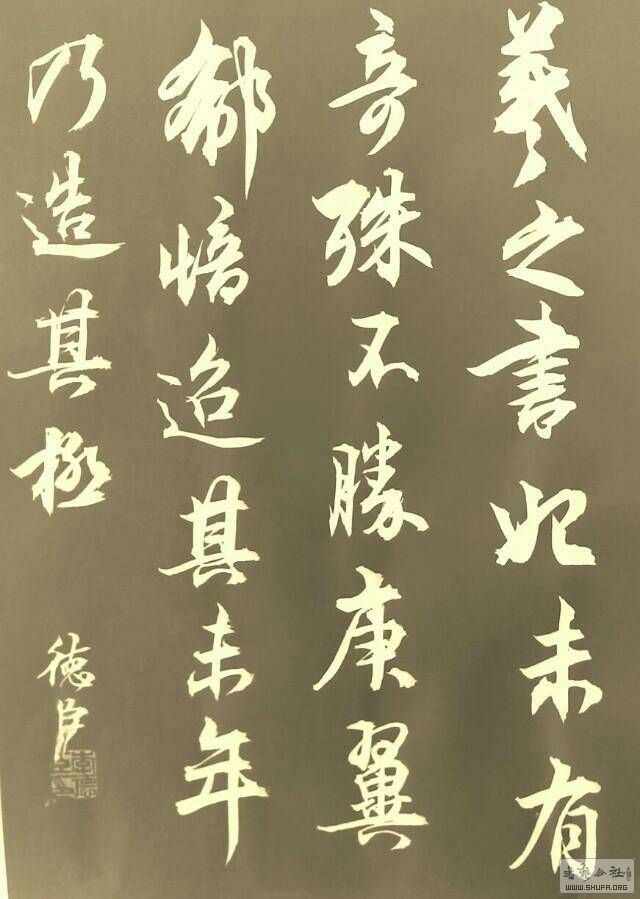 羲之書始未有
奇殊不勝庾翼
郗愔迨其末年
乃造其極
徳臣
书艺公社
WWW.SHUFA.ORG